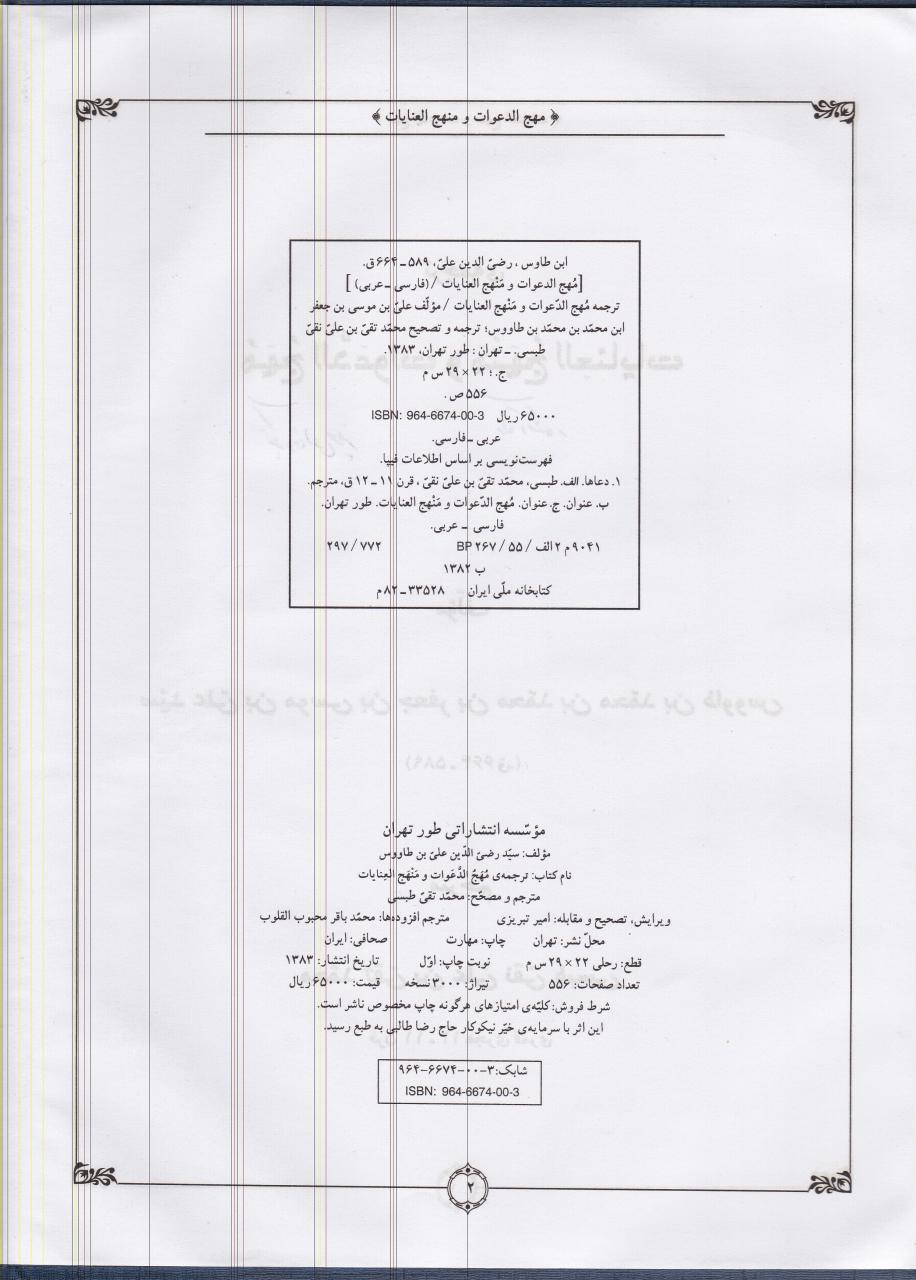 ﴿ مهج الدعوات و منهج العنایات ﴾
ابن طاوس ، رضیّ الدین علیّ، ۵۸۹ ـ ۶۶۴ق.
[مُهج الدعوات و مَنْهج العنایات / (فارسی ـ عربی) ]
ترجمه مُهج الدّعوات و مَنْهج العنایات / مؤلّف علیّ بن موسی بن جعفر
ابن محمّد بن محمّد بن طاووس؛ ترجمه و تصحیح محمّد تقیّ بن علیّ نقیّ
طبسی. ـ تهران : طور تهران، ۱۳۸۳.
ج. ؛ ۲۲ × ۲۹ س م
۵۵۶ ص .
۶۵۰۰۰ ریال ISBN: 964-6674-00-3
عربی ـ فارسی.
فهرست‌نویسی بر اساس اطلاعات فیپا.
۱. دعاها. الف. طبسی، محمّد تقیّ بن علیّ نقیّ ، قرن ۱۱ ـ ۱۲ ق، مترجم.
ب. عنوان. ج. عنوان. مُهج الدّعوات و مَنْهج العنایات. طور تهران.
فارسی ـ عربی.
۹۰۴۱ م ۲ الف / ۵۵ / ۲۶۷ BP ۲۹۷ / ۷۷۲
ب ۱۳۸۲
کتابخانه ملّی ایران ۳۳۵۲۸ ـ ۸۲ م
مؤسّسه انتشاراتی طور تهران
مؤلف: سیّد رضیّ الدّین علیّ بن طاووس
نام کتاب: ترجمه‌ی مُهَجُ الدَّعَوات و مَنْهَج العِنایات
مترجم و مصحّح: محمّد تقیّ طبسی
ویرایش، تصحیح و مقابله: امیر تبریزی مترجم افزوده‌ها: محمّد باقر محبوب القلوب
محلّ نشر: تهران چاپ: مهارت صحافی: ایران
قطع: رحلی ۲۲ × ۲۹ س م نوبت چاپ: اوّل تاریخ انتشار: ۱۳۸۳
تعداد صفحات: ۵۵۶ تیراژ: ۳۰۰۰ نسخه قیمت: ۶۵۰۰۰ ریال
شرط فروش: کلیّه‌ی امتیازهای هرگونه چاپ مخصوص ناشر است.
این اثر با سرمایه‌ی خیّر نیکوکار حاج رضا طالبی به طبع رسید.
شابک: ۳-۰۰-۶۶۷۴-۹۶۴
ISBN: 964-6674-00-3
۲